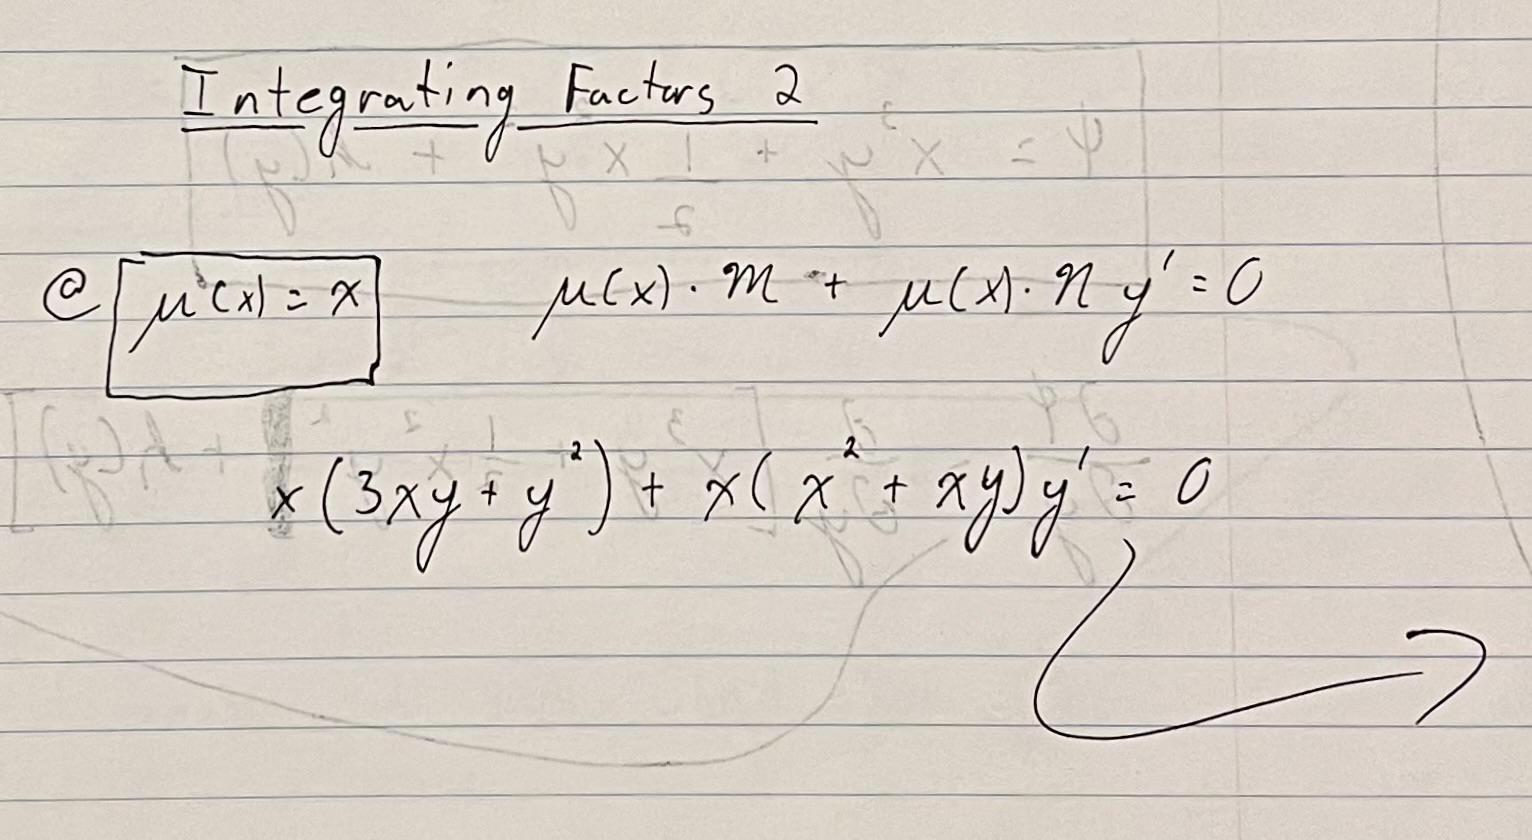 Integrating Factors 2
@ μ(x) = x μ(x) · m + μ(x) · n y' = 0
x (3xy + y²) + x( x² + xy) y' = 0